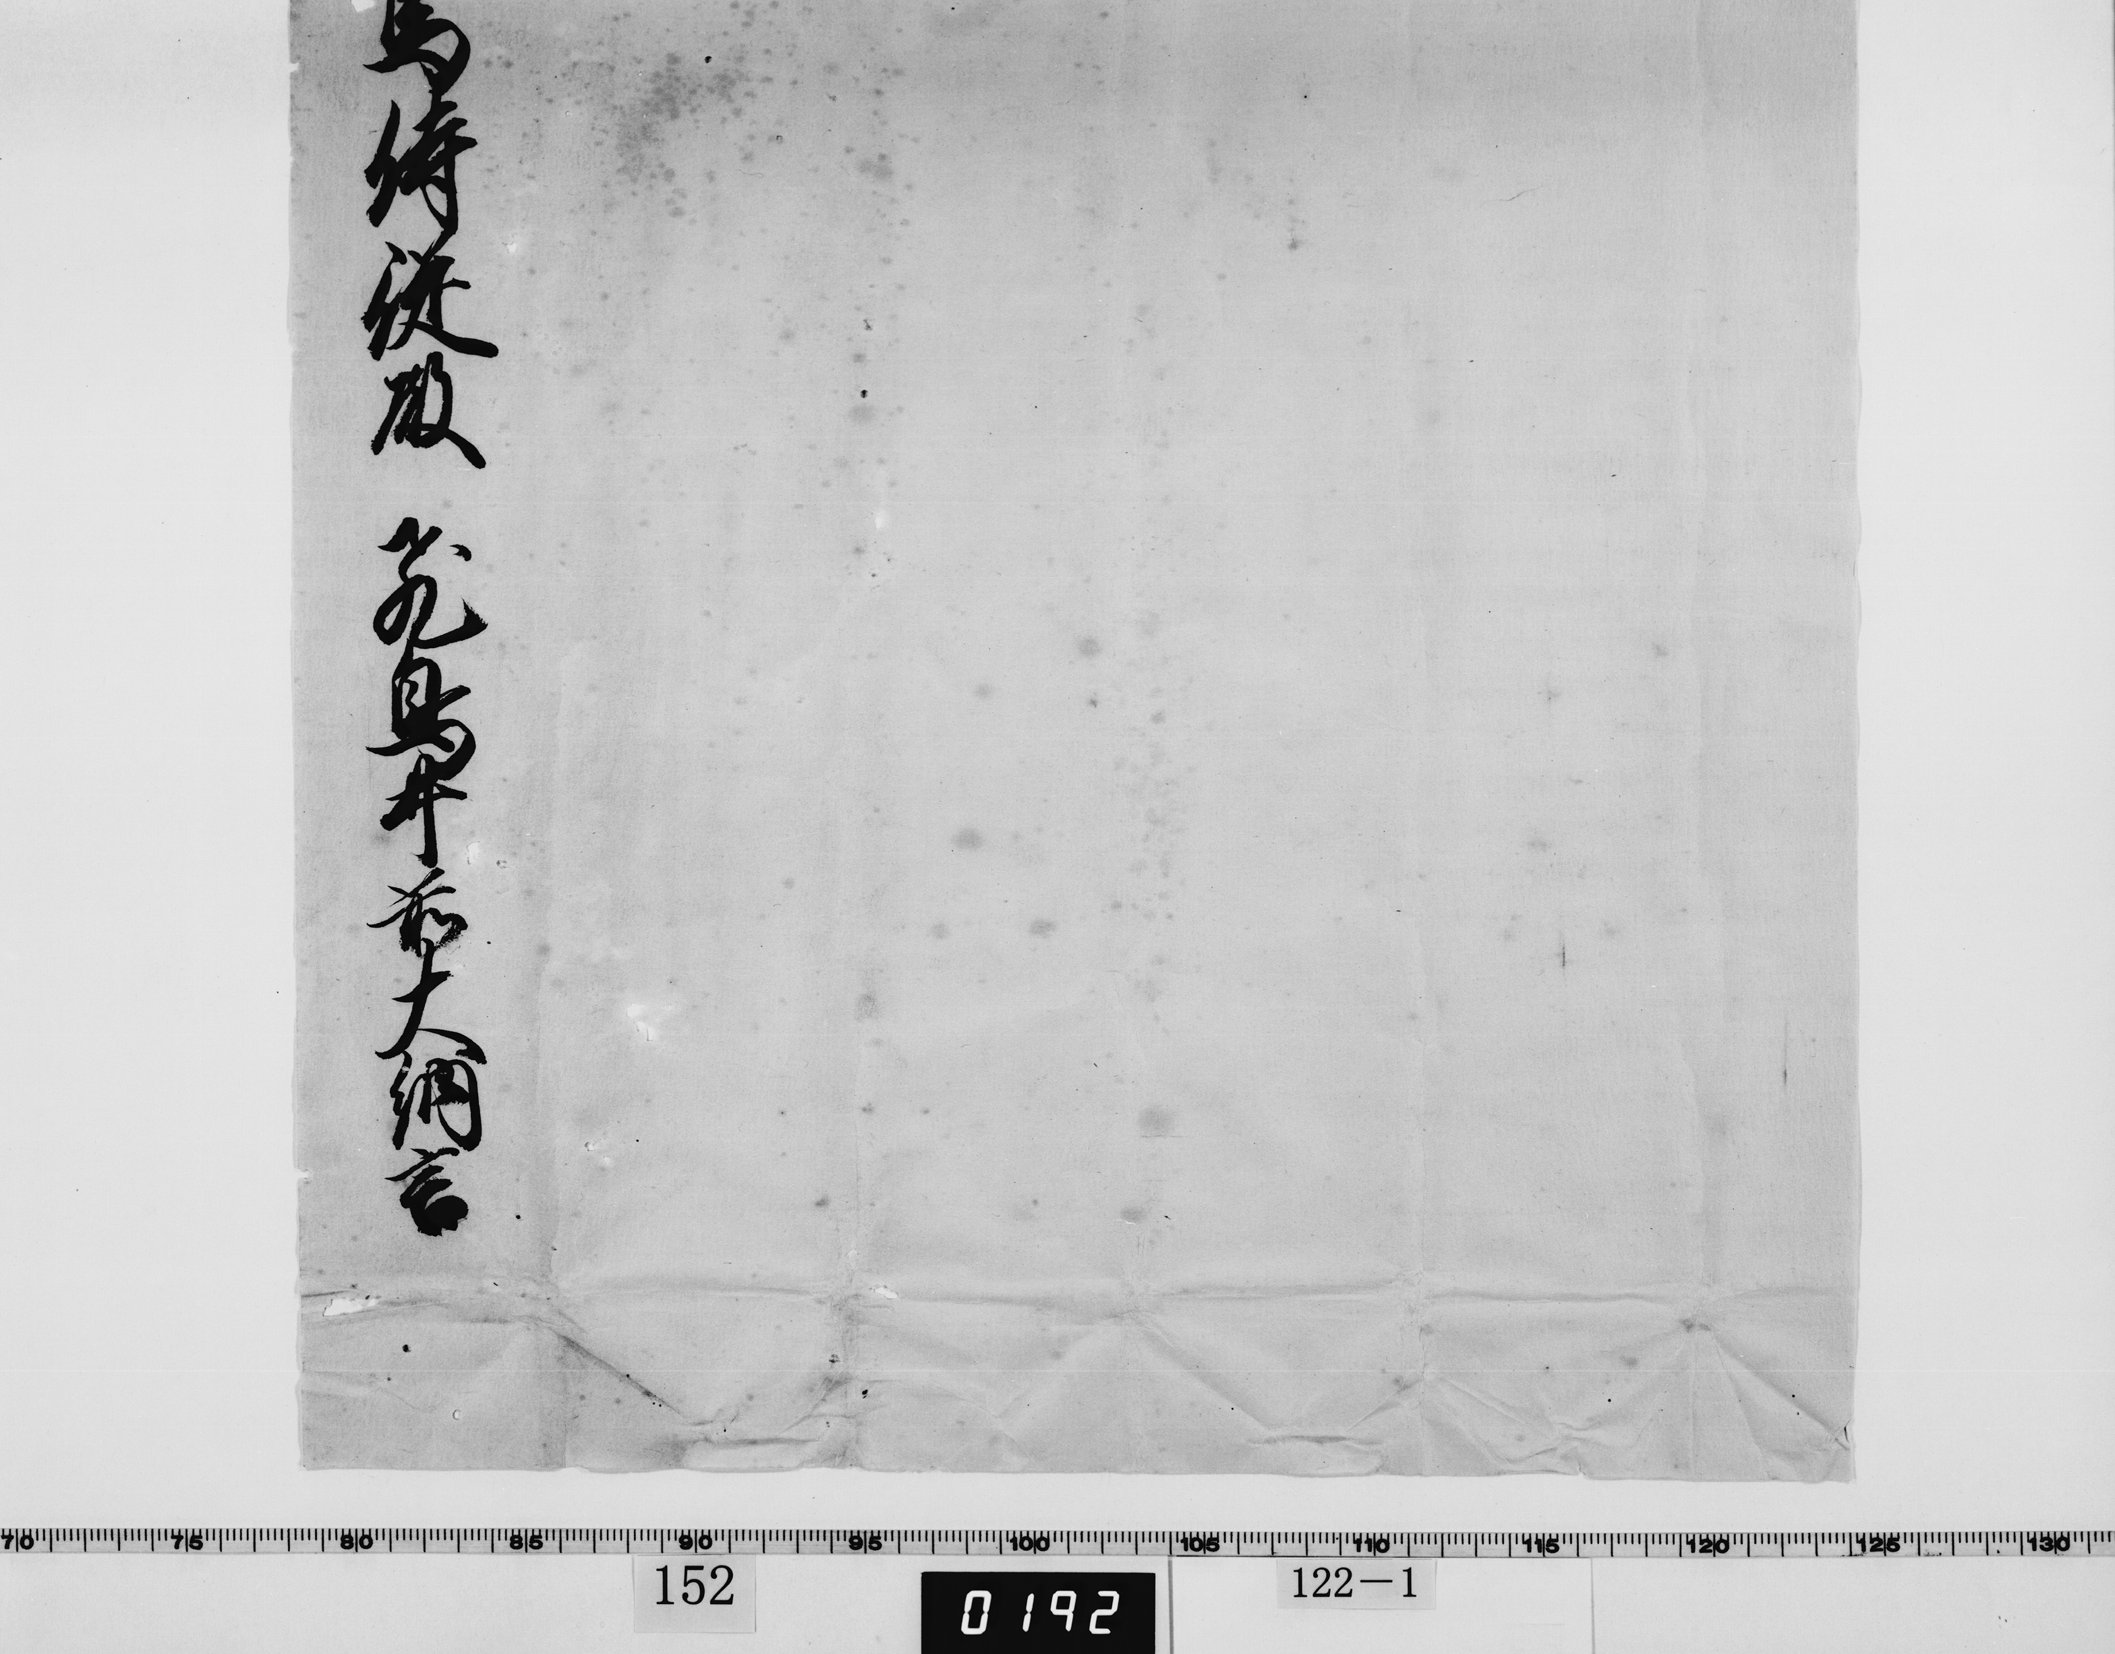 馬侍従殿 飛鳥井前大納言
70 75 80 85 90 95 100 105 110 115 120 125 130
152
0192
122-1